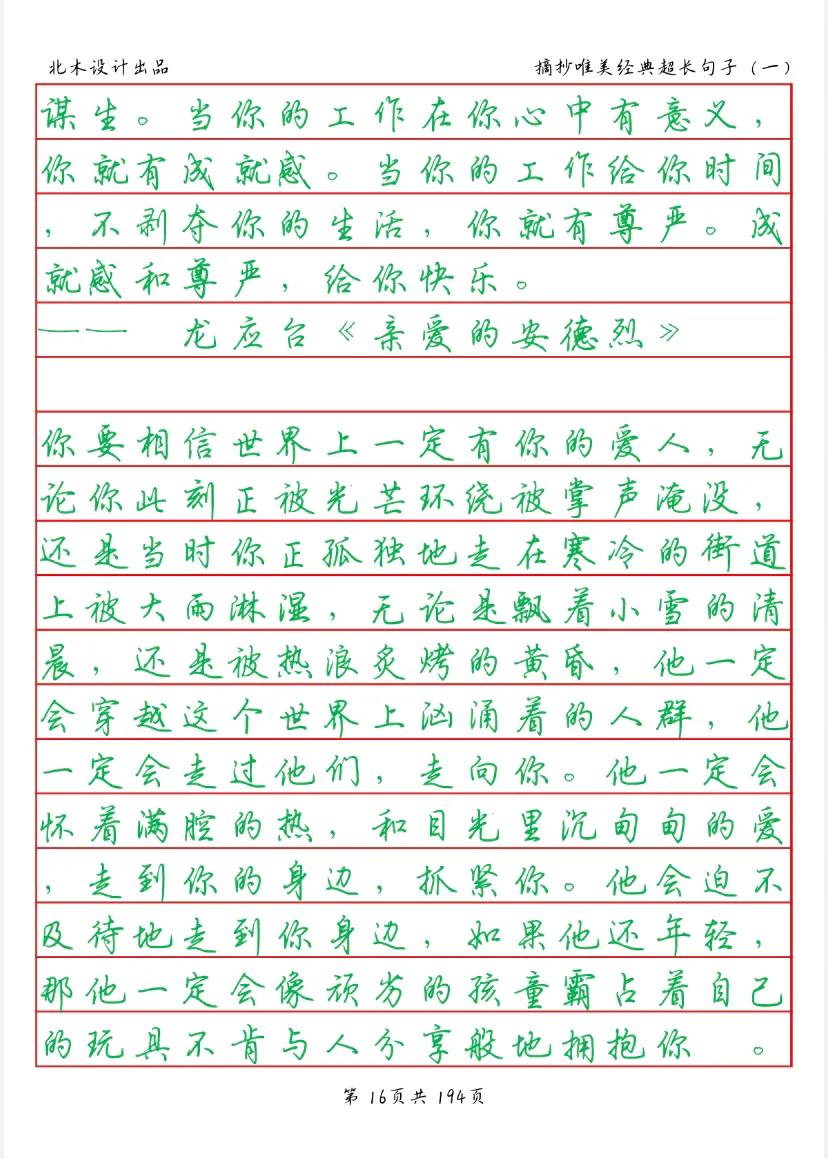 北木设计出品 摘抄唯美经典超长句子（一）
谋生。当你的工作在你心中有意义，
你就有成就感。当你的工作给你时间
，不剥夺你的生活，你就有尊严。成
就感和尊严，给你快乐。
—— 龙应台《亲爱的安德烈》
你要相信世界上一定有你的爱人，无
论你此刻正被光芒环绕被掌声淹没，
还是当时你正孤独地走在寒冷的街道
上被大雨淋湿，无论是飘着小雪的清
晨，还是被热浪炙烤的黄昏，他一定
会穿越这个世界上汹涌着的人群，他
一定会走过他们，走向你。他一定会
怀着满腔的热，和目光里沉甸甸的爱
，走到你的身边，抓紧你。他会迫不
及待地走到你身边，如果他还年轻，
那他一定会像顽劣的孩童霸占着自己
的玩具不肯与人分享般地拥抱你 。
第 16页共 194页